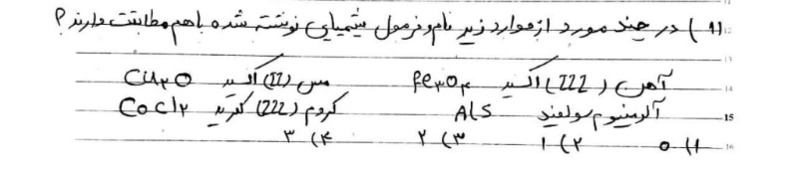 ۱۱) در چند مورد از موارد زیر نام و فرمول شیمیایی نوشته شده باهم مطابقت دارند؟
آهن (III) اکسید Fe₃O₄ مس (II) اکسید Cu₂O
آلومینیوم سولفید AlS کروم (III) کلرید CoCl₂
۱) ۰ ۲) ۱ ۳) ۲ ۴) ۳